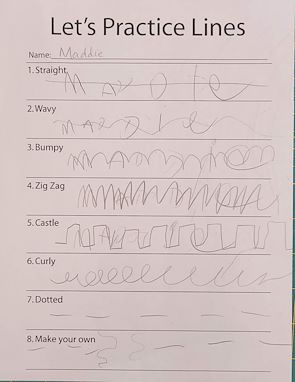 Let's Practice Lines
Name: Maddie
1. Straight
Maddie
2. Wavy
Maddie
3. Bumpy
4. Zig Zag
5. Castle
6. Curly
7. Dotted
8. Make your own